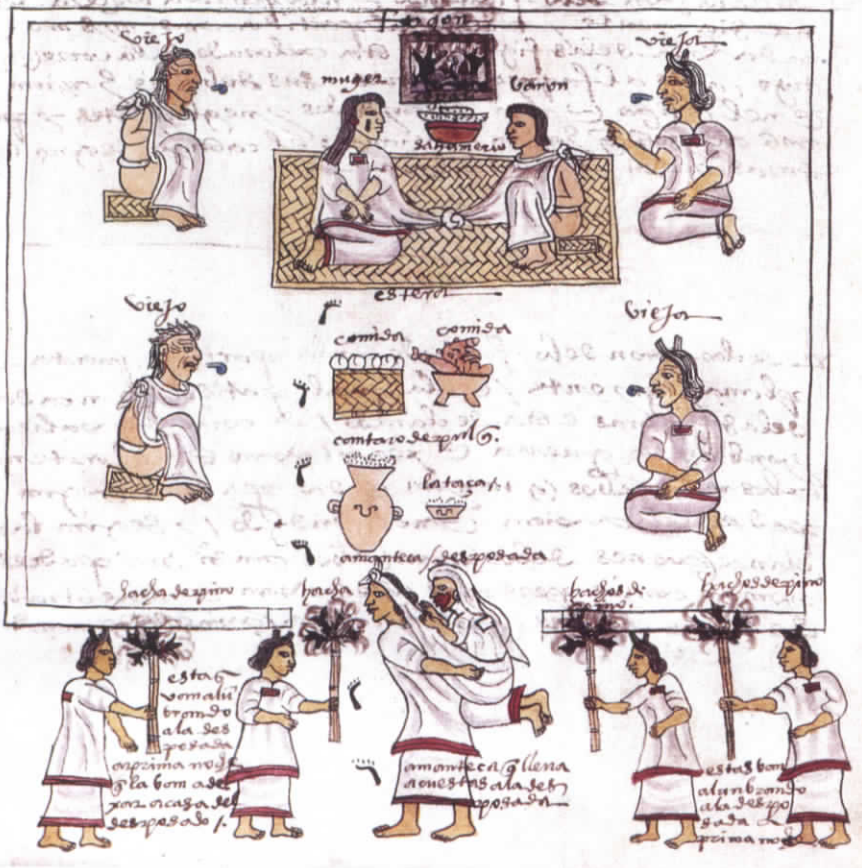 Fogon
viejo
vieja
muger
baron
sahumerio
estera
viejo
vieja
comida
comida
cantaro de pulq̃.
la taça
amanteca / desposada
hacha de pino
hacha
hachos de
pino.
hachos de pino
estas q̃
van alū
brando
a la des
posada
a prima noche
q̃ la van a de
xar a casa del
desposado /.
amanteca q̃ lleva
a cuestas a la des
posada
estas van
alunbrando
a la despo
sada a
prima noche